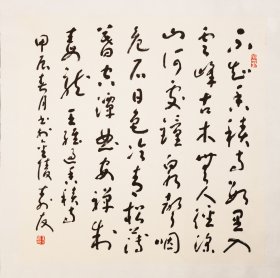 不知香積寺数里入
雲峰古木無人徑深
山何處鐘泉聲咽
危石日色冷青松薄
暮空潭曲安禪制
毒龍 王維過香積寺
甲辰春月书於金陵